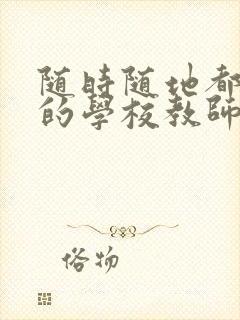 随時随地都
的學校教師
俗物